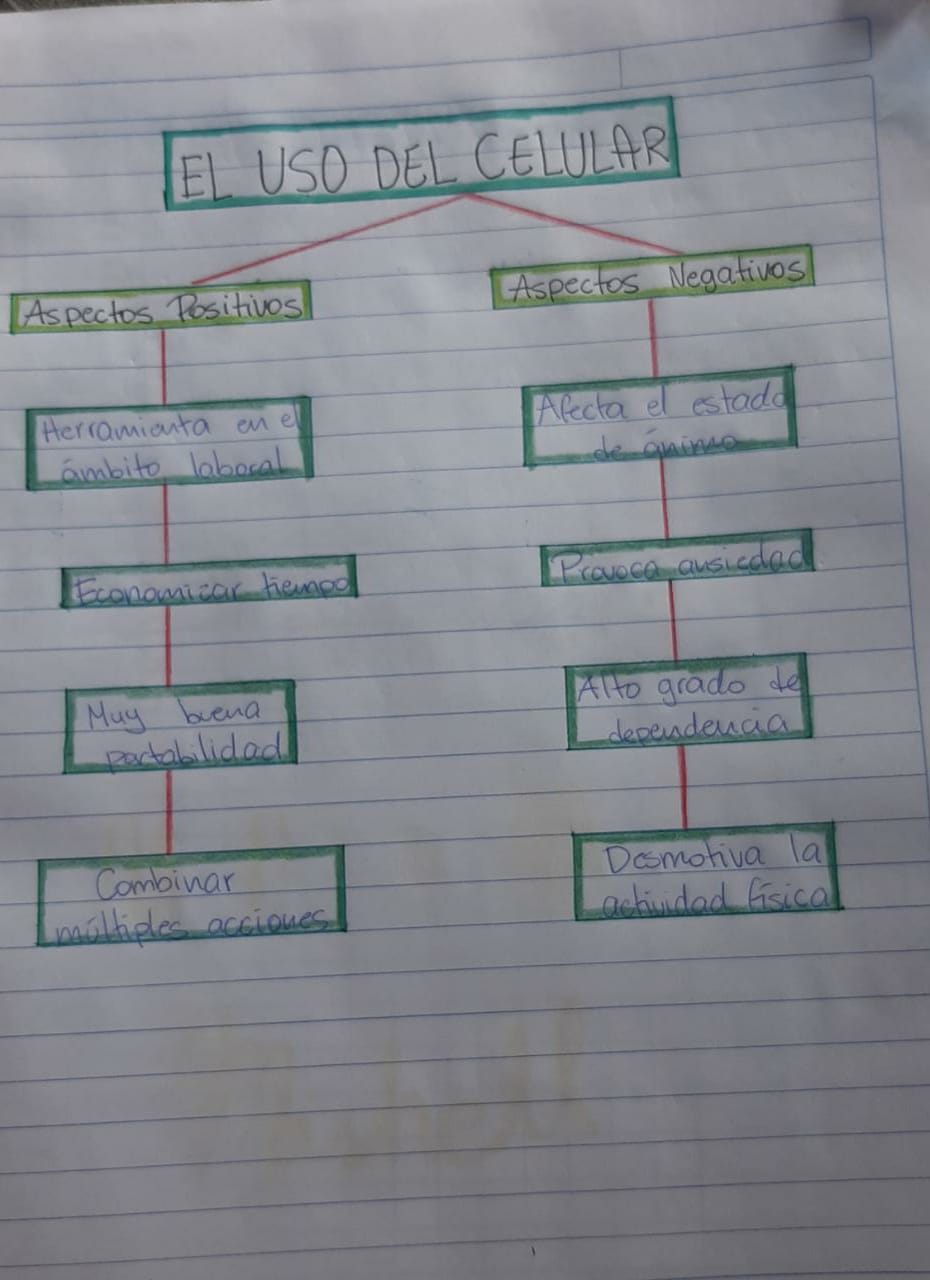 EL USO DEL CELULAR
Aspectos Positivos
Herramienta en el
ámbito laboral
Economizar tiempo
Muy buena
portabilidad
Combinar
múltiples acciones
Aspectos Negativos
Afecta el estado
de ánimo
Provoca ansiedad
Alto grado de
dependencia
Desmotiva la
actividad física